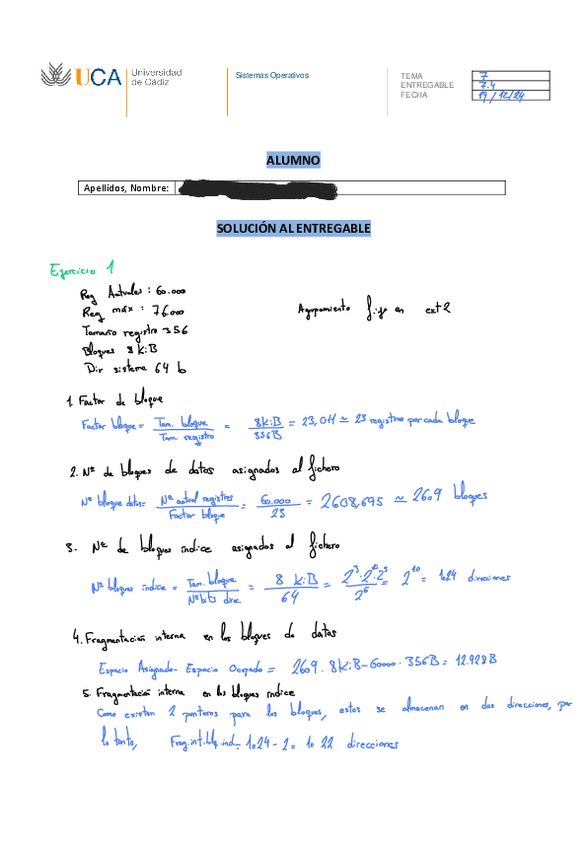 UCA Universidad de Cádiz
Sistemas Operativos
TEMA 7
ENTREGABLE 7.4
FECHA 19/12/24
ALUMNO
Apellidos, Nombre:
SOLUCIÓN AL ENTREGABLE
Ejercicio 1
Reg Actuales : 60.000
Reg máx : 76.000
Agrupamiento fijo en ext2
Tamaño registro 356
Bloques 8 KiB
Dir sistema 64 b
1. Factor de bloque
Factor bloque = Tam. bloque / Tam. registro = 8KiB / 356B = 23,011 ≃ 23 registros por cada bloque
2. Nº de bloques de datos asignados al fichero
Nº bloque datos = Nº actual registros / Factor bloque = 60.000 / 23 = 2608,695 ≃ 2609 bloques
3. Nº de bloques índice asignados al fichero
Nº bloques índice = Tam. bloque / Nº bits direc. = 8 KiB / 64 = 2^3·2^10·2^3 / 2^6 = 2^10 = 1024 direcciones
4. Fragmentación interna en los bloques de datos
Espacio Asignado - Espacio Ocupado = 2609 · 8KiB - 60000 · 356B = 12.928B
5. Fragmentación interna en los bloques índice
Como existen 2 punteros para los bloques, estos se almacenan en dos direcciones, por
lo tanto, Frag.int.blq.ind = 1024 - 2 = 1022 direcciones